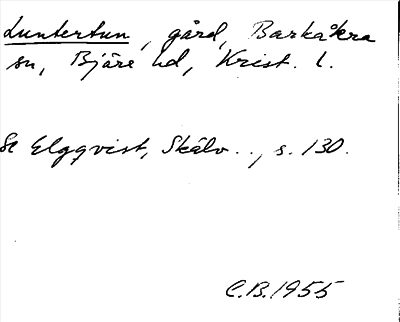 Luntertun, gård, Barkåkra
sn, Bjäre hd, Krist. l.
Se Elgqvist, Skälv.., s. 130.
C.B. 1955